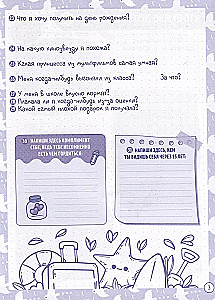 13 Что я хочу получить на день рождения?
14 На какую кинозвезду я похожа?
15 Какая принцесса из мультфильмов самая умная?
16 Меня когда-нибудь выгоняли из класса? За что?
17 У меня в школе вкусно кормят?
18 Плакала ли я когда-нибудь из-за оценки?
19 Какой самый плохой подарок я получала?
НАПИШИ ЗДЕСЬ КОМПЛИМЕНТ
СЕБЕ, ВЕДЬ ТЕБЕ НЕСОМНЕННО
ЕСТЬ ЧЕМ ГОРДИТЬСЯ.
НАПИШИ ЗДЕСЬ, КЕМ
ТЫ ВИДИШЬ СЕБЯ ЧЕРЕЗ 15 ЛЕТ.